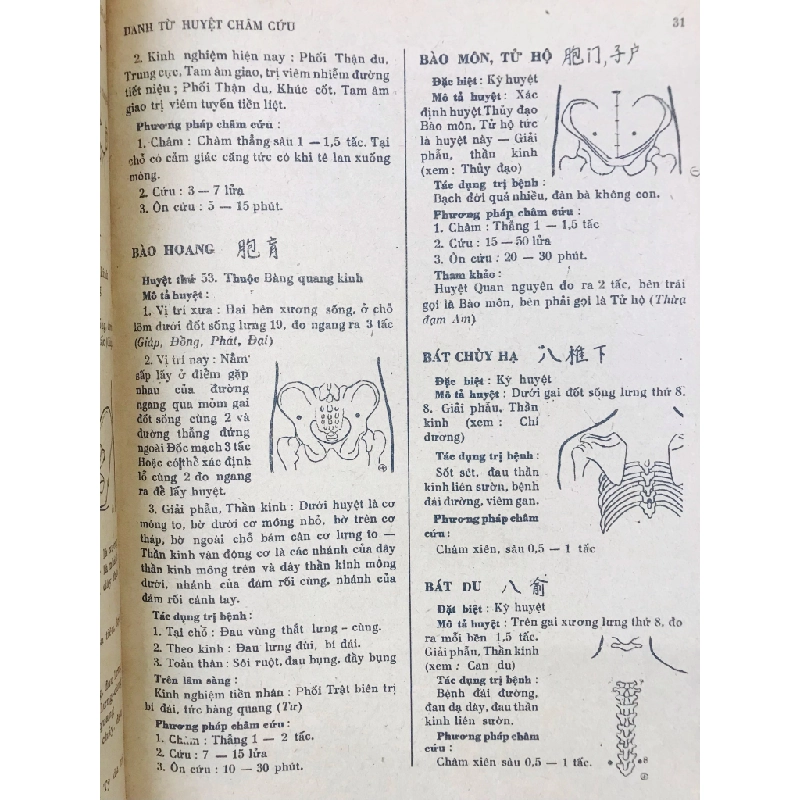 DANH TỪ HUYỆT CHÂM CỨU
31
2. Kinh nghiệm hiện nay : Phối Thận du,
Trung cực, Tam âm giao, trị viêm nhiễm đường
tiết niệu ; Phối Thận du, Khúc cốt, Tam âm
giao trị viêm tuyến tiền liệt.
Phương pháp châm cứu :
1. Châm : Châm thẳng sâu 1 — 1,5 tấc. Tại
chỗ có cảm giác căng tức có khi tê lan xuống
mông.
2. Cứu : 3 — 7 lửa
3. Ôn cứu : 5 — 15 phút.
BÀO HOANG 胞肓
Huyệt thứ 53. Thuộc Bàng quang kinh
Mô tả huyệt :
1. Vị trí xưa : Hai bên xương sống, ở chỗ
lõm dưới đốt sống lưng 19, đo ngang ra 3 tấc
(Giáp, Đồng, Phát, Đại)
2. Vị trí nay : Nằm
sấp lấy ở điểm gặp
nhau của đường
ngang qua mỏm gai
đốt sống cùng 2 và
đường thẳng đứng
ngoài Đốc mạch 3 tấc
Hoặc có thể xác định
lỗ cùng 2 đo ngang
ra để lấy huyệt.
3. Giải phẫu, Thần kinh : Dưới huyệt là cơ
mông to, bờ dưới cơ mông nhỏ, bờ trên cơ
tháp, bờ ngoài chỗ bám cân cơ lưng to —
Thần kinh vận động cơ là các nhánh của dây
thần kinh mông trên và dây thần kinh mông
dưới, nhánh của đám rối cùng, nhánh của
đám rối cánh tay.
Tác dụng trị bệnh :
1. Tại chỗ : Đau vùng thắt lưng – cùng.
2. Theo kinh : Đau lưng đùi, bí đái.
3. Toàn thân : Sôi ruột, đau bụng, đầy bụng
Trên lâm sàng :
Kinh nghiệm tiền nhân : Phối Trật biên trị
bí đái, tức bàng quang (Tư)
Phương pháp châm cứu :
1. Châm : Thẳng 1 — 2 tấc.
2. Cứu : 7 — 15 lửa
3. Ôn cứu : 10 — 30 phút.
BÀO MÔN, TỬ HỘ 胞门,子户
Đặc biệt : Kỳ huyệt
Mô tả huyệt : Xác
định huyệt Thủy đạo
Bào môn, Tử hộ tức
là huyệt này — Giải
phẫu, thần kinh
(xem : Thủy đạo)
Tác dụng trị bệnh :
Bạch đới quá nhiều, đàn bà không con.
Phương pháp châm cứu :
1. Châm : Thẳng 1 — 1,5 tấc
2. Cứu : 15 — 50 lửa
3. Ôn cứu : 20 — 30 phút.
Tham khảo :
Huyệt Quan nguyên đo ra 2 tấc, bên trái
gọi là Bào môn, bên phải gọi là Tử hộ (Thừa
đạm Am).
BÁT CHÙY HẠ 八椎下
Đặc biệt : Kỳ huyệt
Mô tả huyệt : Dưới gai đốt sống lưng thứ 8.
8. Giải phẫu, Thần
kinh (xem : Chí
dương)
Tác dụng trị bệnh :
Sốt sét, đau thần
kinh liên sườn, bệnh
đái đường, viêm gan.
Phương pháp châm
cứu :
Châm xiên, sâu 0,5 — 1 tấc
BÁT DU 八俞
Đặt biệt : Kỳ huyệt
Mô tả huyệt : Trên gai xương lưng thứ 8, đo
ra mỗi bên 1,5 tấc.
Giải phẫu, Thần kinh
(xem : Can du)
Tác dụng trị bệnh :
Bệnh đái đường,
đau dạ dày, đau thần
kinh liên sườn.
Phương pháp châm
cứu :
Châm xiên sâu 0,5 — 1 tấc.
8